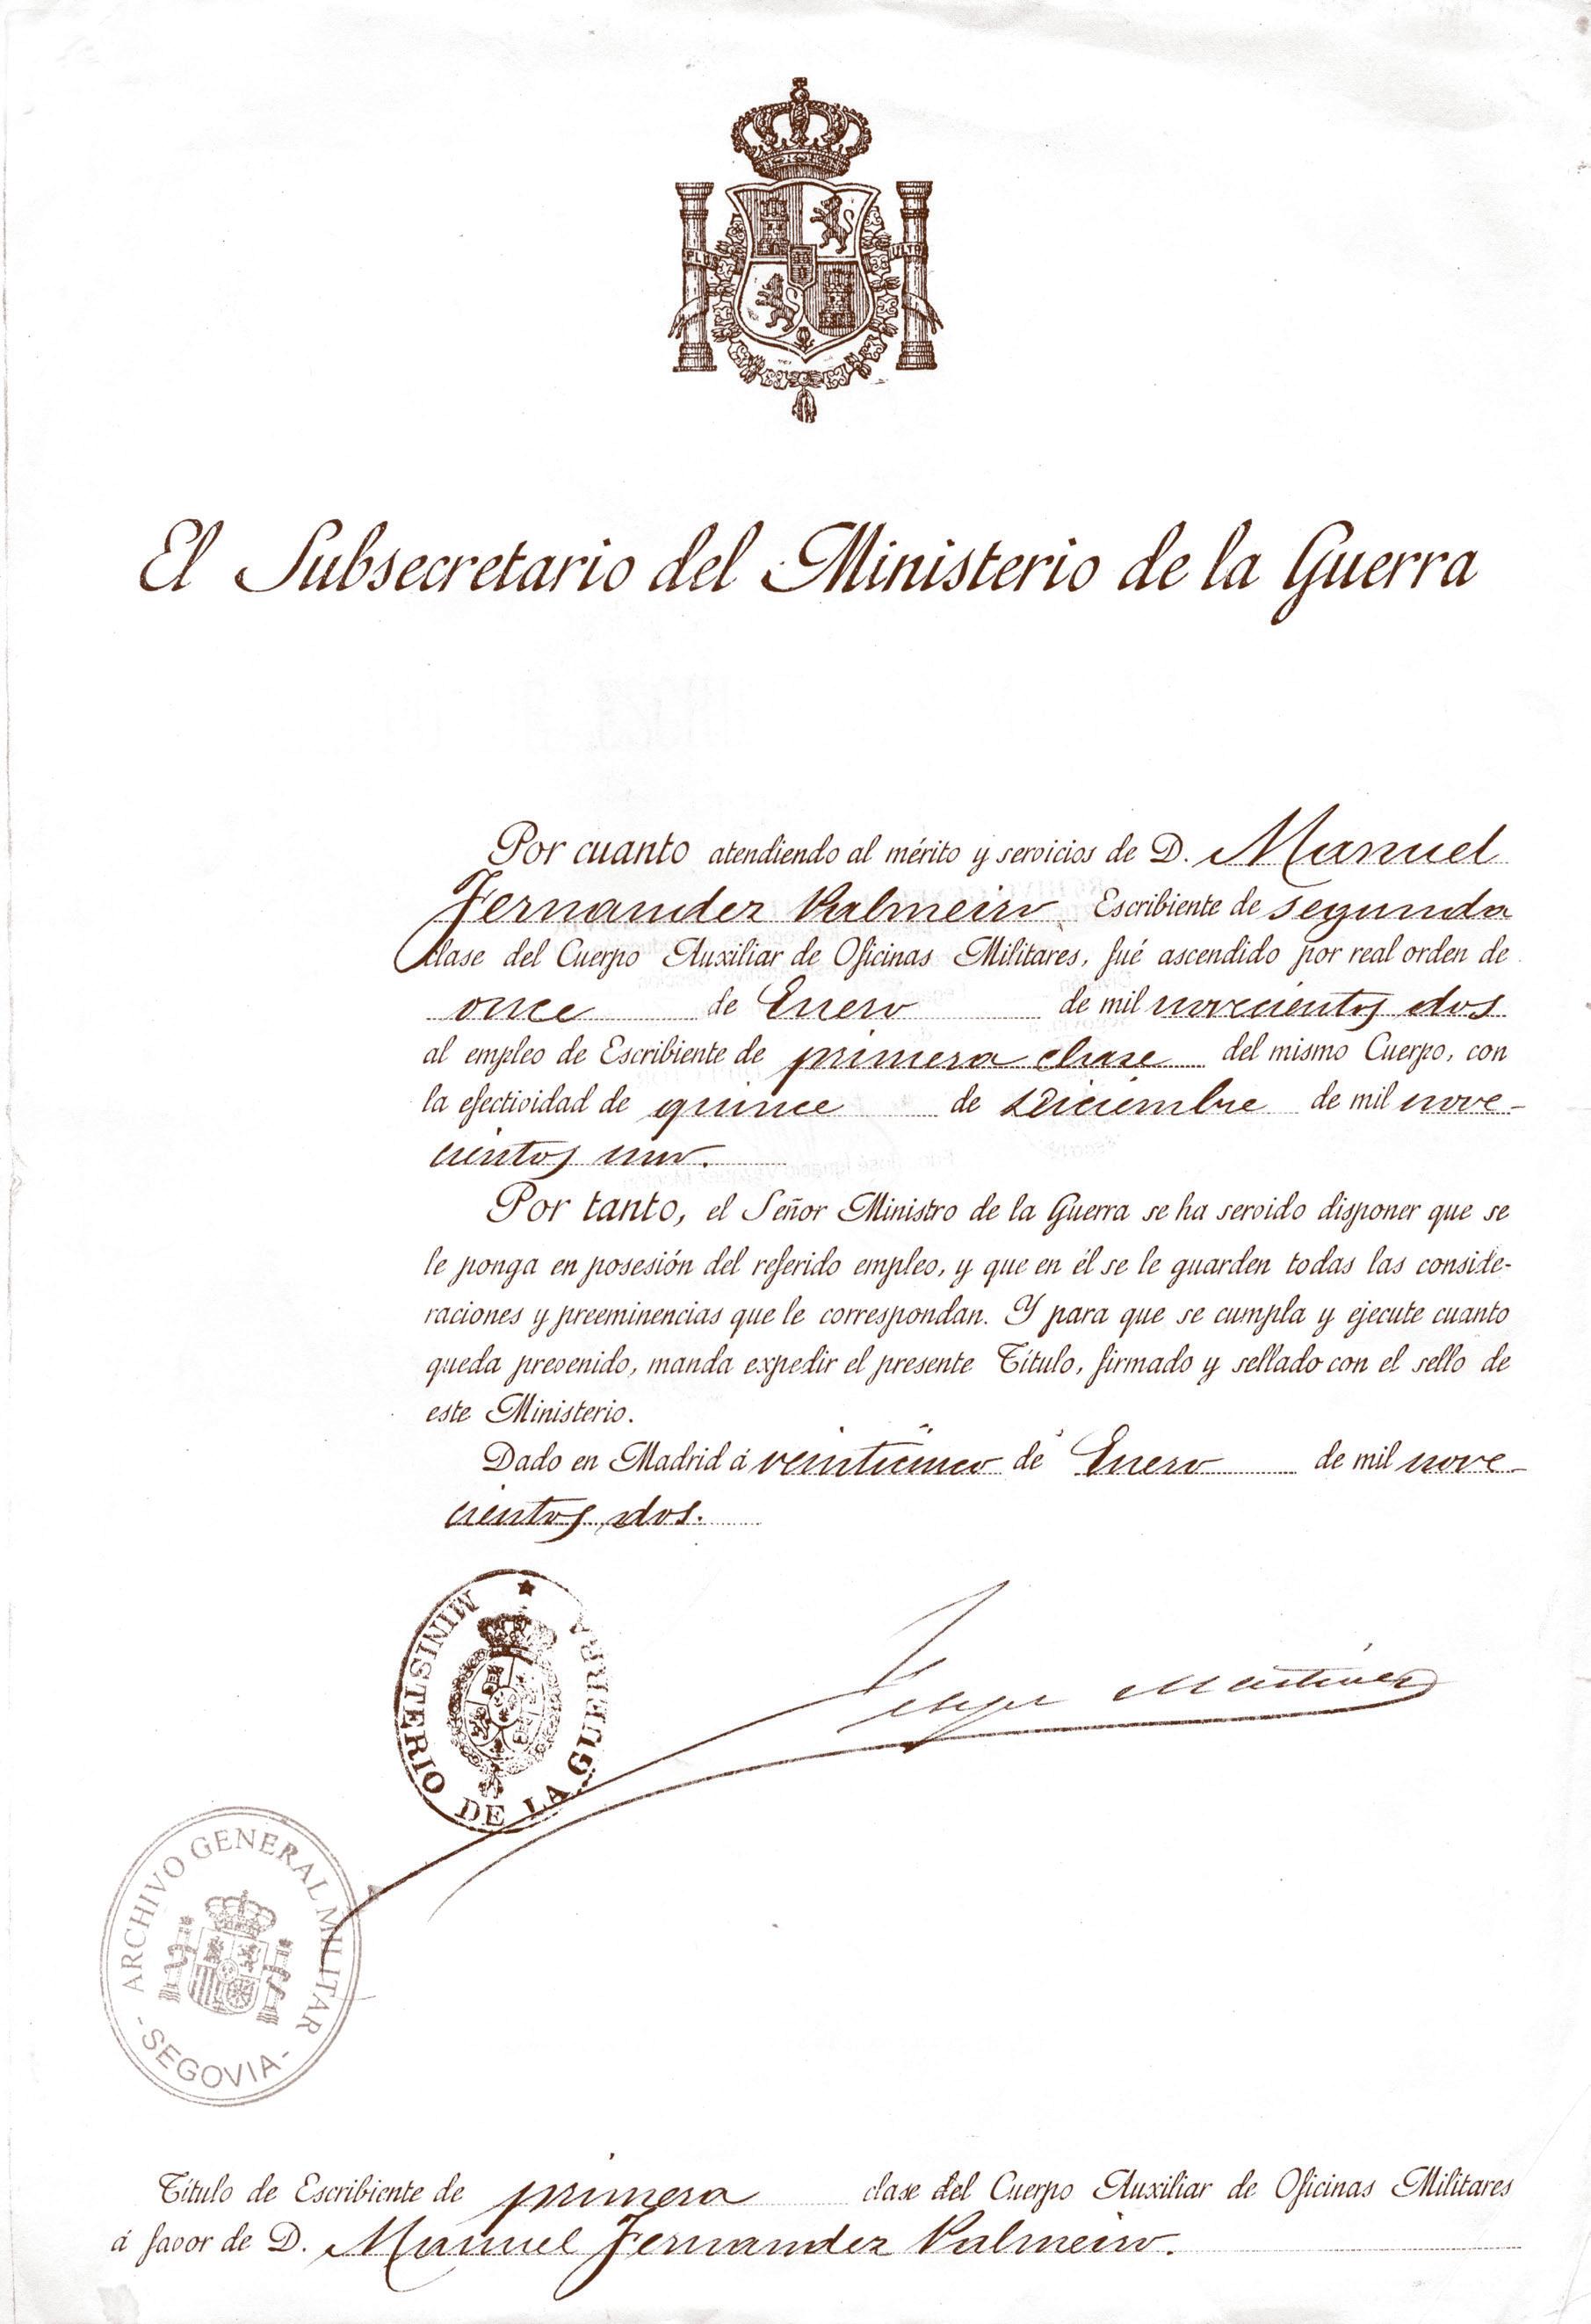 PLUS ULTRA
El Subsecretario del Ministerio de la Guerra
Por cuanto atendiendo al mérito y servicios de D. Manuel
Fernandez Palmeiro Escribiente de segunda
clase del Cuerpo Auxiliar de Oficinas Militares, fué ascendido por real orden de
once de Enero de mil novecientos dos
al empleo de Escribiente de primera clase del mismo Cuerpo, con
la efectividad de quince de Diciembre de mil nove-
cientos uno.
Por tanto, el Señor Ministro de la Guerra se ha servido disponer que se
le ponga en posesión del referido empleo, y que en él se le guarden todas las conside-
raciones y preeminencias que le correspondan. Y para que se cumpla y ejecute cuanto
queda prevenido, manda expedir el presente Título, firmado y sellado con el sello de
este Ministerio.
Dado en Madrid á veinticinco de Enero de mil nove-
cientos dos.
MINISTERIO DE LA GUERRA
Martinez
ARCHIVO GENERAL MILITAR
- SEGOVIA -
Título de Escribiente de primera clase del Cuerpo Auxiliar de Oficinas Militares
á favor de D. Manuel Fernandez Palmeiro.